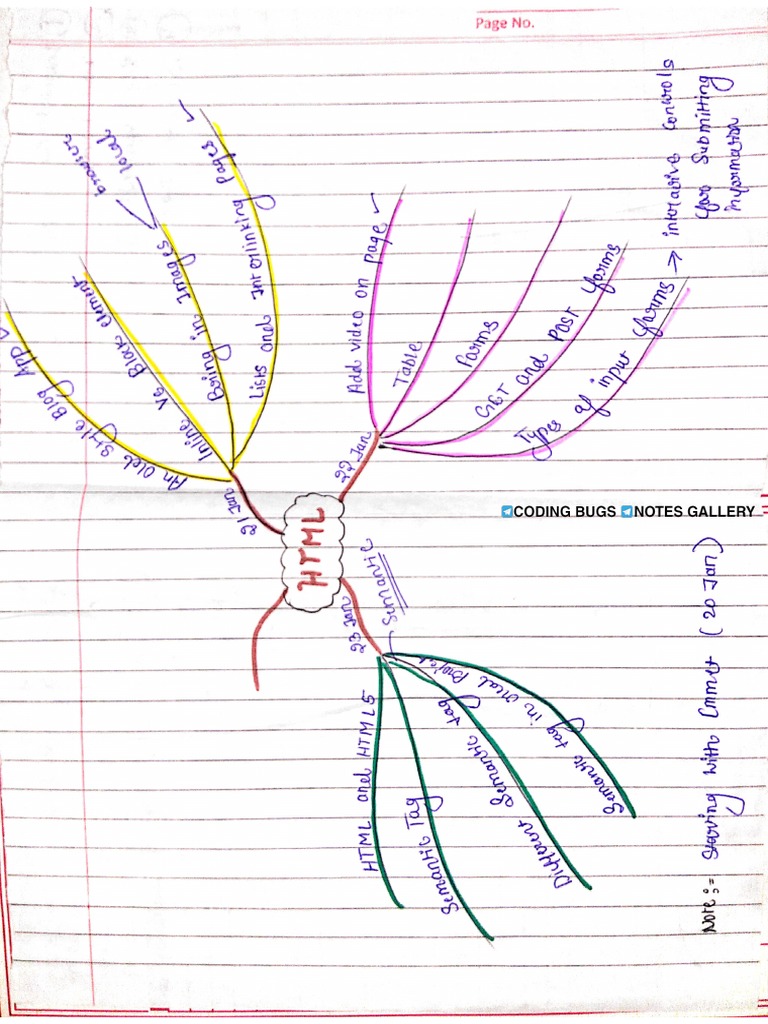 Page No.
HTML
21 Jan
An old style Blog App
Inline Vs Block element
Being in Images
browser
local
Lists and Interlinking Pages
22 Jan
Add video on page
Table
Forms
GET and POST forms
Types of input forms →
interactive controls
for submitting
information
23 Jan
Semantic
HTML and HTML5
Semantic Tag
Different Semantic tag
Semantic tag in real Project
CODING BUGS NOTES GALLERY
Note:- Starting with Emmet (20 Jan)